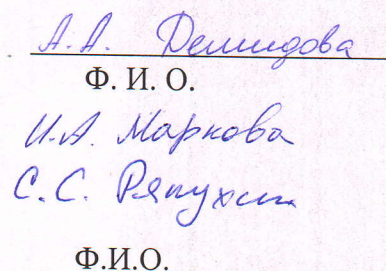 А.А. Демидова
Ф. И. О.
И.А. Маркова
С.С. Ряпухин
Ф.И.О.